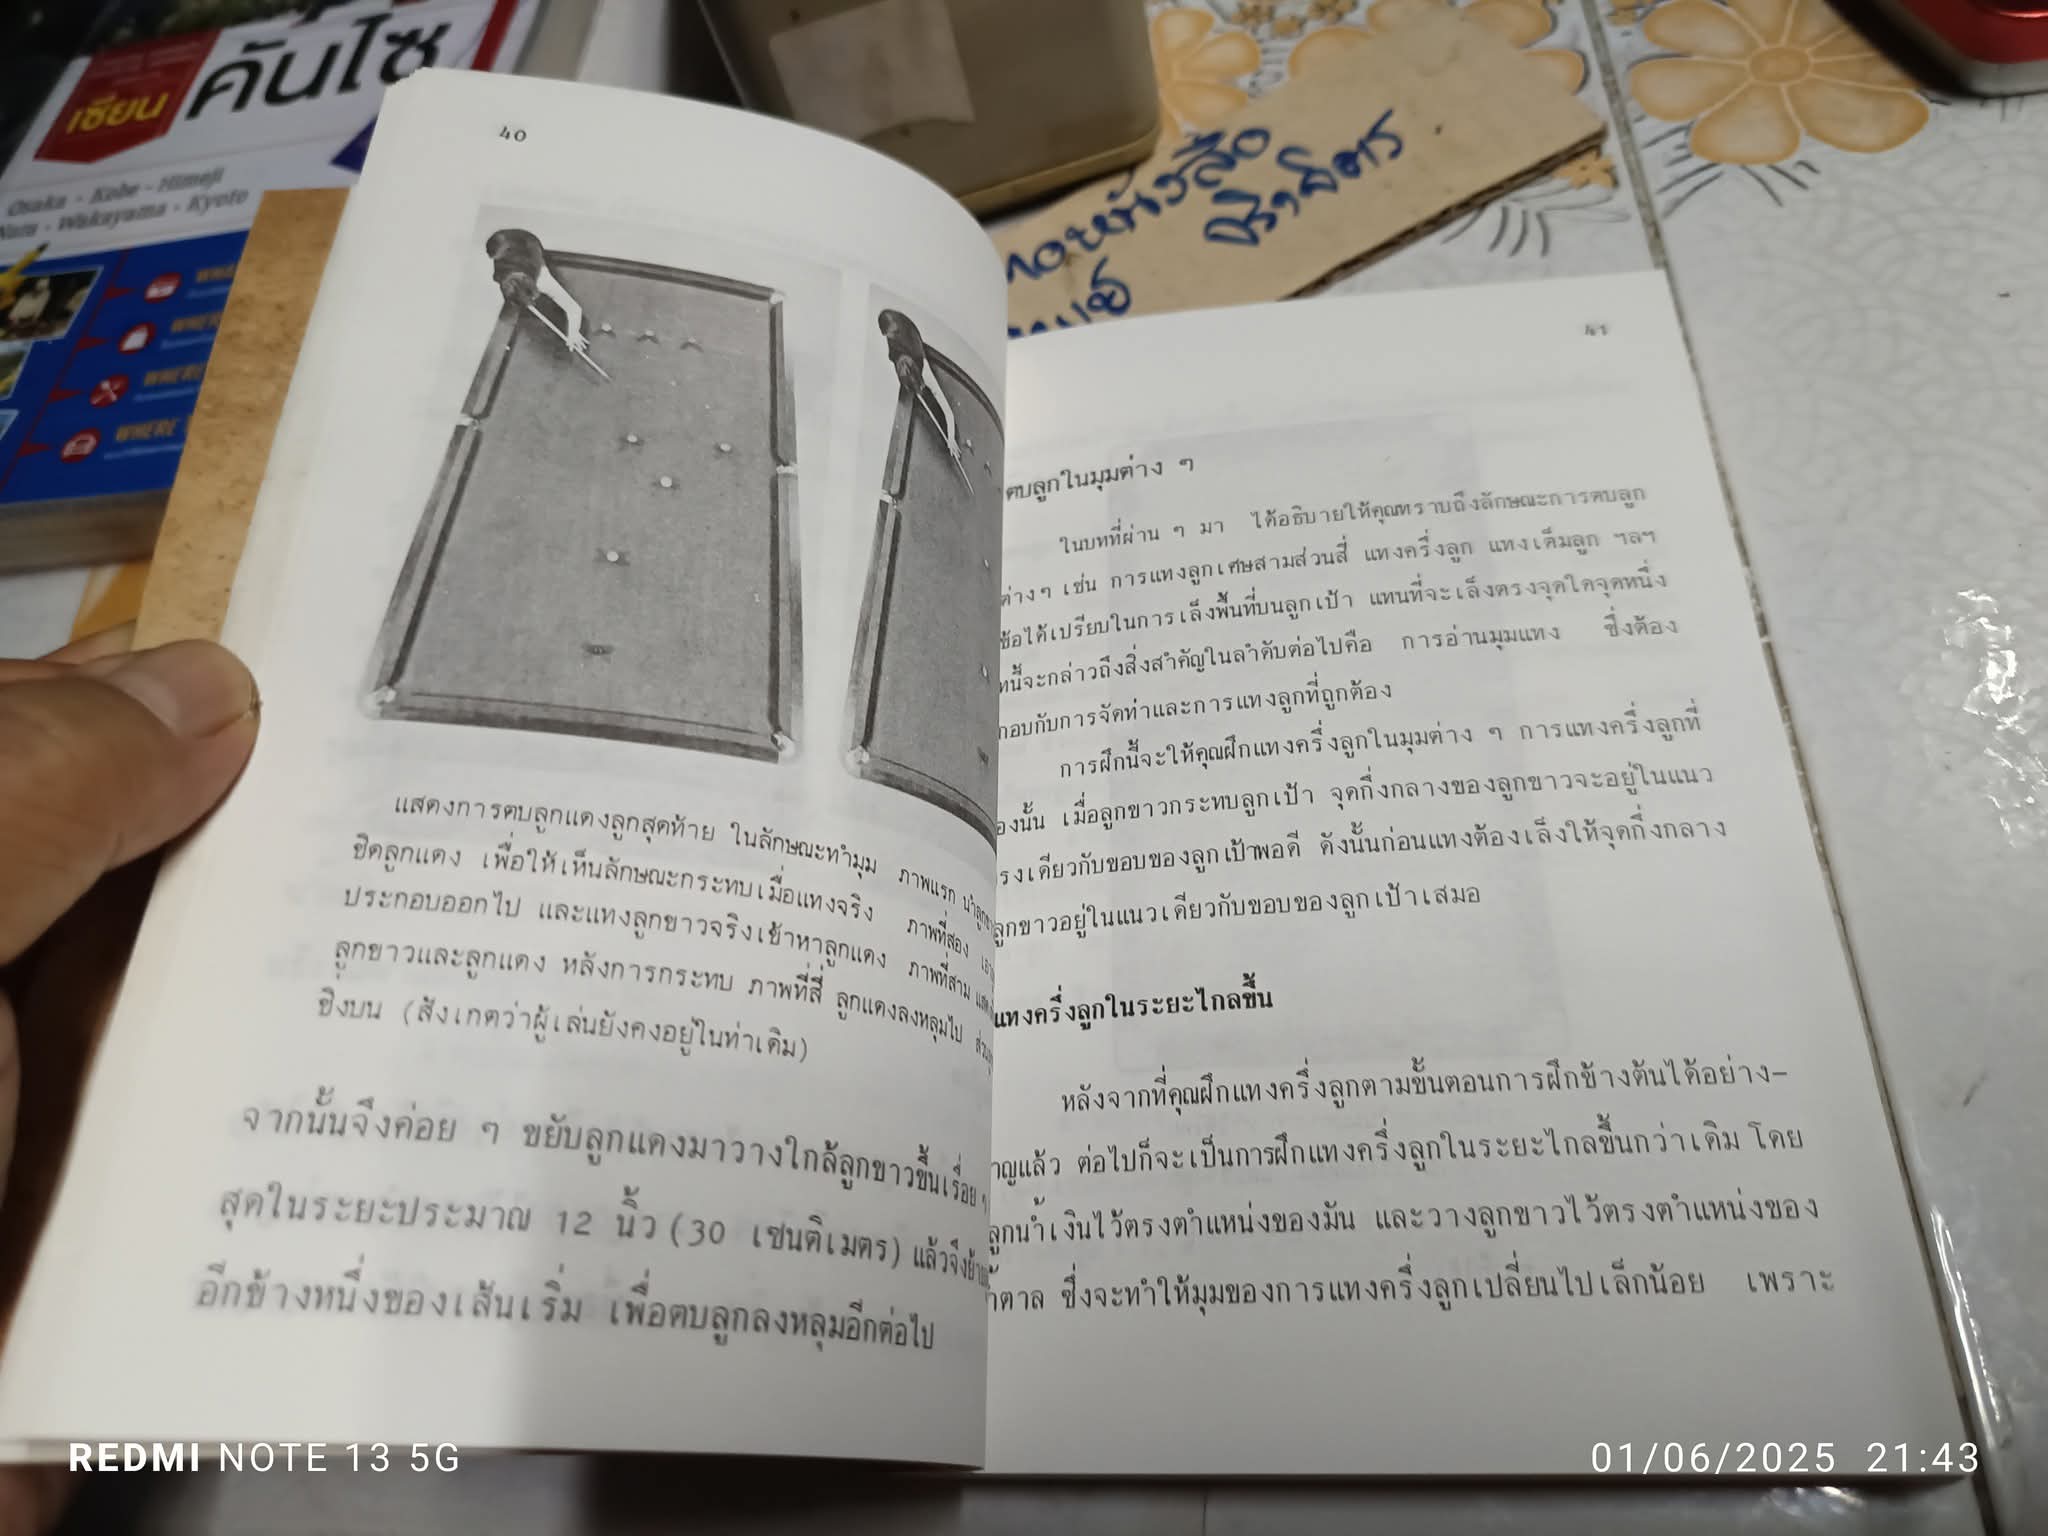 เซียน
คันไซ
Osaka - Kobe - Himeji
Nara - Wakayama - Kyoto
WHERE
หนังสือ
40
แสดงการตบลูกแดงลูกสุดท้าย ในลักษณะทำมุม ภาพแรก นำลูก
ชิดลูกแดง เพื่อให้เห็นลักษณะกระทบเมื่อแทงจริง ภาพที่สอง
ประกอบออกไป และแทงลูกขาวจริงเข้าหาลูกแดง ภาพที่สาม
ลูกขาวและลูกแดง หลังการกระทบ ภาพที่สี่ ลูกแดงลงหลุมไป
ชิ่งบน (สังเกตว่าผู้เล่นยังคงอยู่ในท่าเดิม)
จากนั้นจึงค่อย ๆ ขยับลูกแดงมาวางใกล้ลูกขาวขึ้นเรื่อย ๆ
สุดในระยะประมาณ 12 นิ้ว (30 เซนติเมตร) แล้วจึงย้าย
อีกข้างหนึ่งของเส้นเริ่ม เพื่อตบลูกลงหลุมอีกต่อไป
41
ตบลูกในมุมต่าง ๆ
ในบทที่ผ่าน ๆ มา ได้อธิบายให้คุณทราบถึงลักษณะการตบลูก
ต่างๆ เช่น การแทงลูกเศษสามส่วนสี่ แทงครึ่งลูก แทงเต็มลูก ฯลฯ
ข้อได้เปรียบในการเล็งพื้นที่บนลูกเป้า แทนที่จะเล็งตรงจุดใดจุดหนึ่ง
นี้จะกล่าวถึงสิ่งสำคัญในลำดับต่อไปคือ การอ่านมุมแทง ซึ่งต้อง
กอบกับการจัดท่าและการแทงลูกที่ถูกต้อง
การฝึกนี้จะให้คุณฝึกแทงครึ่งลูกในมุมต่าง ๆ การแทงครึ่งลูกที่
องนั้น เมื่อลูกขาวกระทบลูกเป้า จุดกึ่งกลางของลูกขาวจะอยู่ในแนว
รงเดียวกับขอบของลูกเป้าพอดี ดังนั้นก่อนแทงต้องเล็งให้จุดกึ่งกลาง
ลูกขาวอยู่ในแนวเดียวกับขอบของลูกเป้าเสมอ
แทงครึ่งลูกในระยะไกลขึ้น
หลังจากที่คุณฝึกแทงครึ่งลูกตามขั้นตอนการฝึกข้างต้นได้อย่าง–
าญแล้ว ต่อไปก็จะเป็นการฝึกแทงครึ่งลูกในระยะไกลขึ้นกว่าเดิม โดย
ลูกน้ำเงินไว้ตรงตำแหน่งของมัน และวางลูกขาวไว้ตรงตำแหน่งของ
้ำตาล ซึ่งจะทำให้มุมของการแทงครึ่งลูกเปลี่ยนไปเล็กน้อย เพราะ
REDMI NOTE 13 5G
01/06/2025 21:43